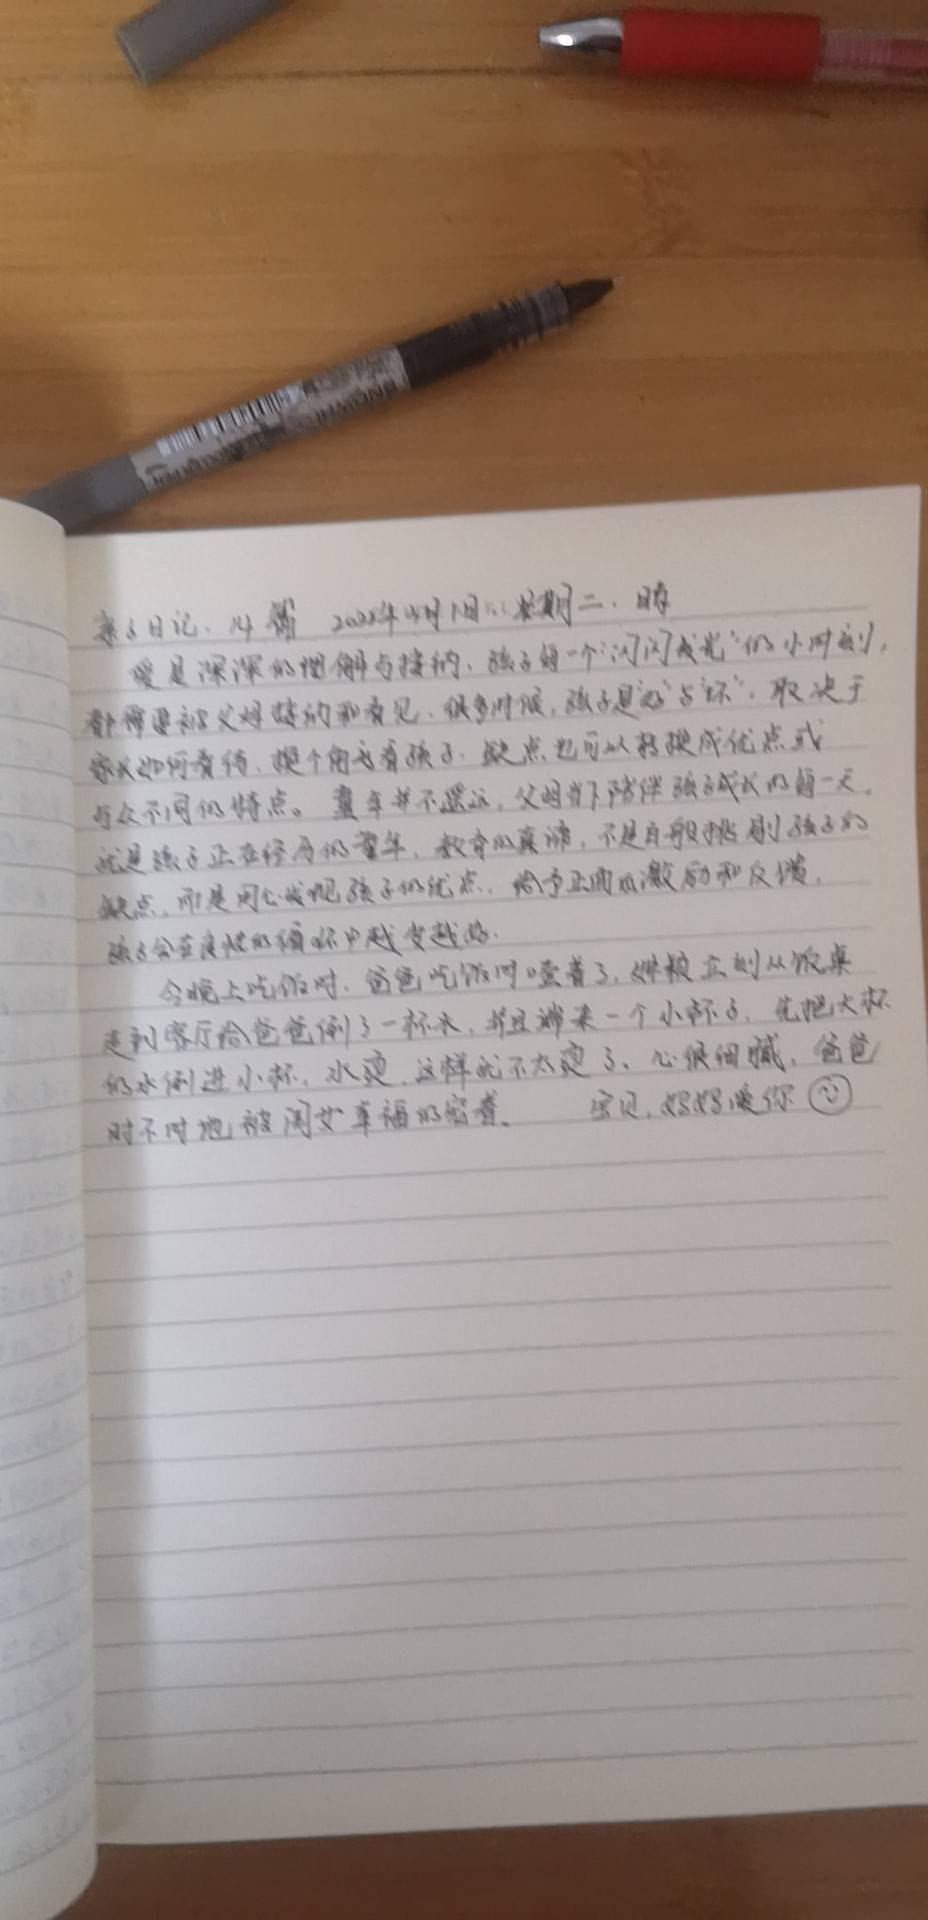 亲子日记. 14篇 2022年 月 日 星期二. 晴
爱是深深的理解与接纳. 孩子每一个"闪闪发光"的小时刻,
都得要被父母接纳和看见. 很多时候, 孩子是"好"与"坏". 取决于
家长如何看待. 换个角度看孩子. 缺点也可以转换成优点或
与众不同的特点。童年并不遥远, 父母当下陪伴孩子成长的每一天.
就是孩子正在经历的童年, 教育的真谛, 不是百般挑剔孩子的
缺点, 而是用心发现孩子的优点. 给予正面的激励和反馈,
孩子会在良性的循环中越变越好.
今晚上吃饭时. 爸爸吃饭时噎着了, 立刻从饭桌
走到客厅给爸爸倒了一杯水, 并且端来一个小杯子, 先把大杯
的水倒进小杯, 水烫, 这样就不太烫了、心很细腻, 爸爸
时不时地被闺女幸福的宠着。 宝贝, 妈妈爱你